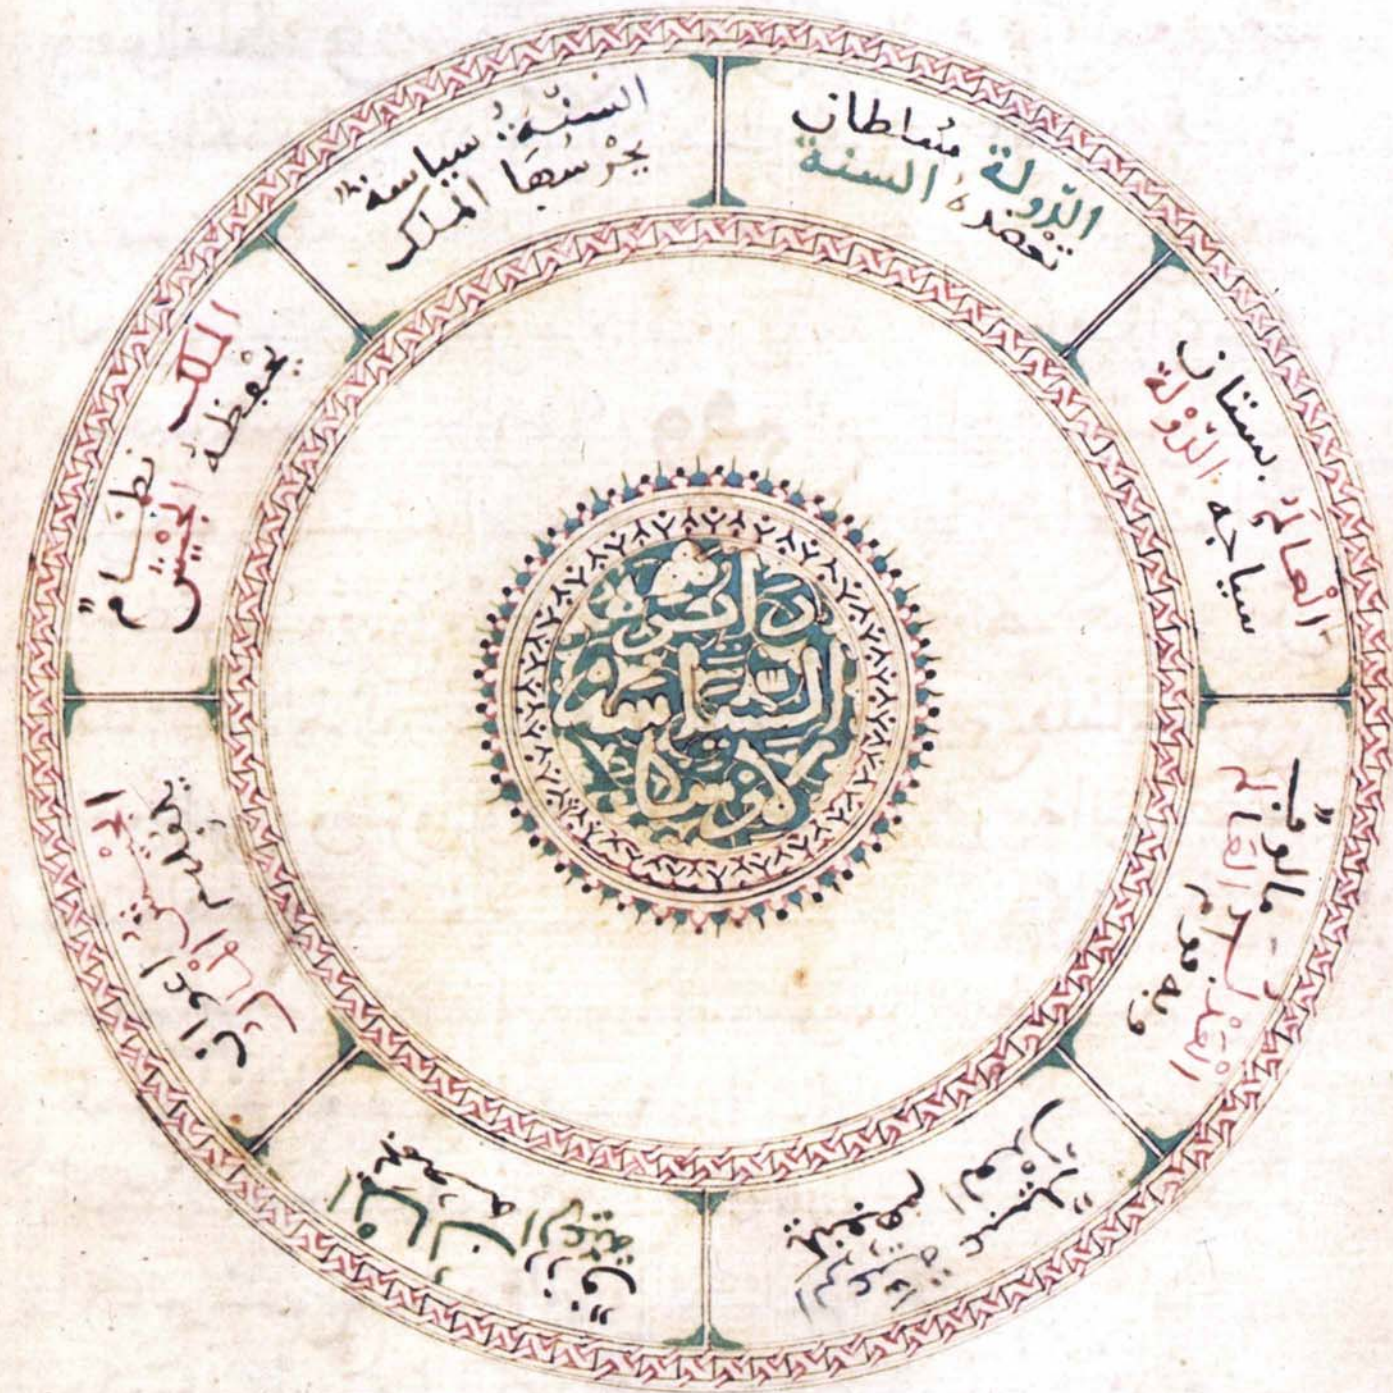 دائرة
السياسة
العالم بستان
سياجه الدولة
الدولة سلطان
تعضده السنة
السنة سياسة
يحرسها الملك
الملك نظام
يحفظه الجيش
الجيش اعوان
يكفلهم المال
المال رزق
الرعية
الرعية
العدل
العدل مالوف
وبه قوام العالم